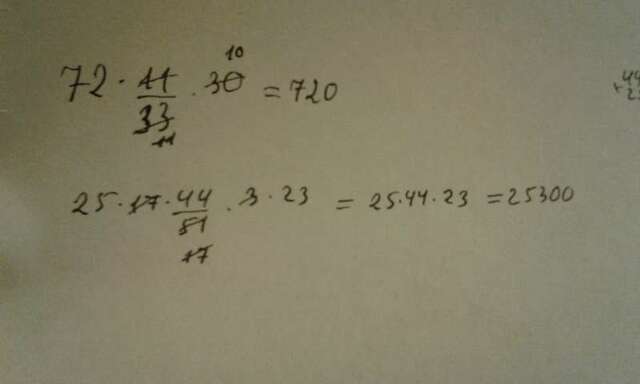 10
72 · 11/33 · 30 = 720
11
25 · 17 · 44/51 · 3 · 23 = 25·44·23 = 25300
17
44